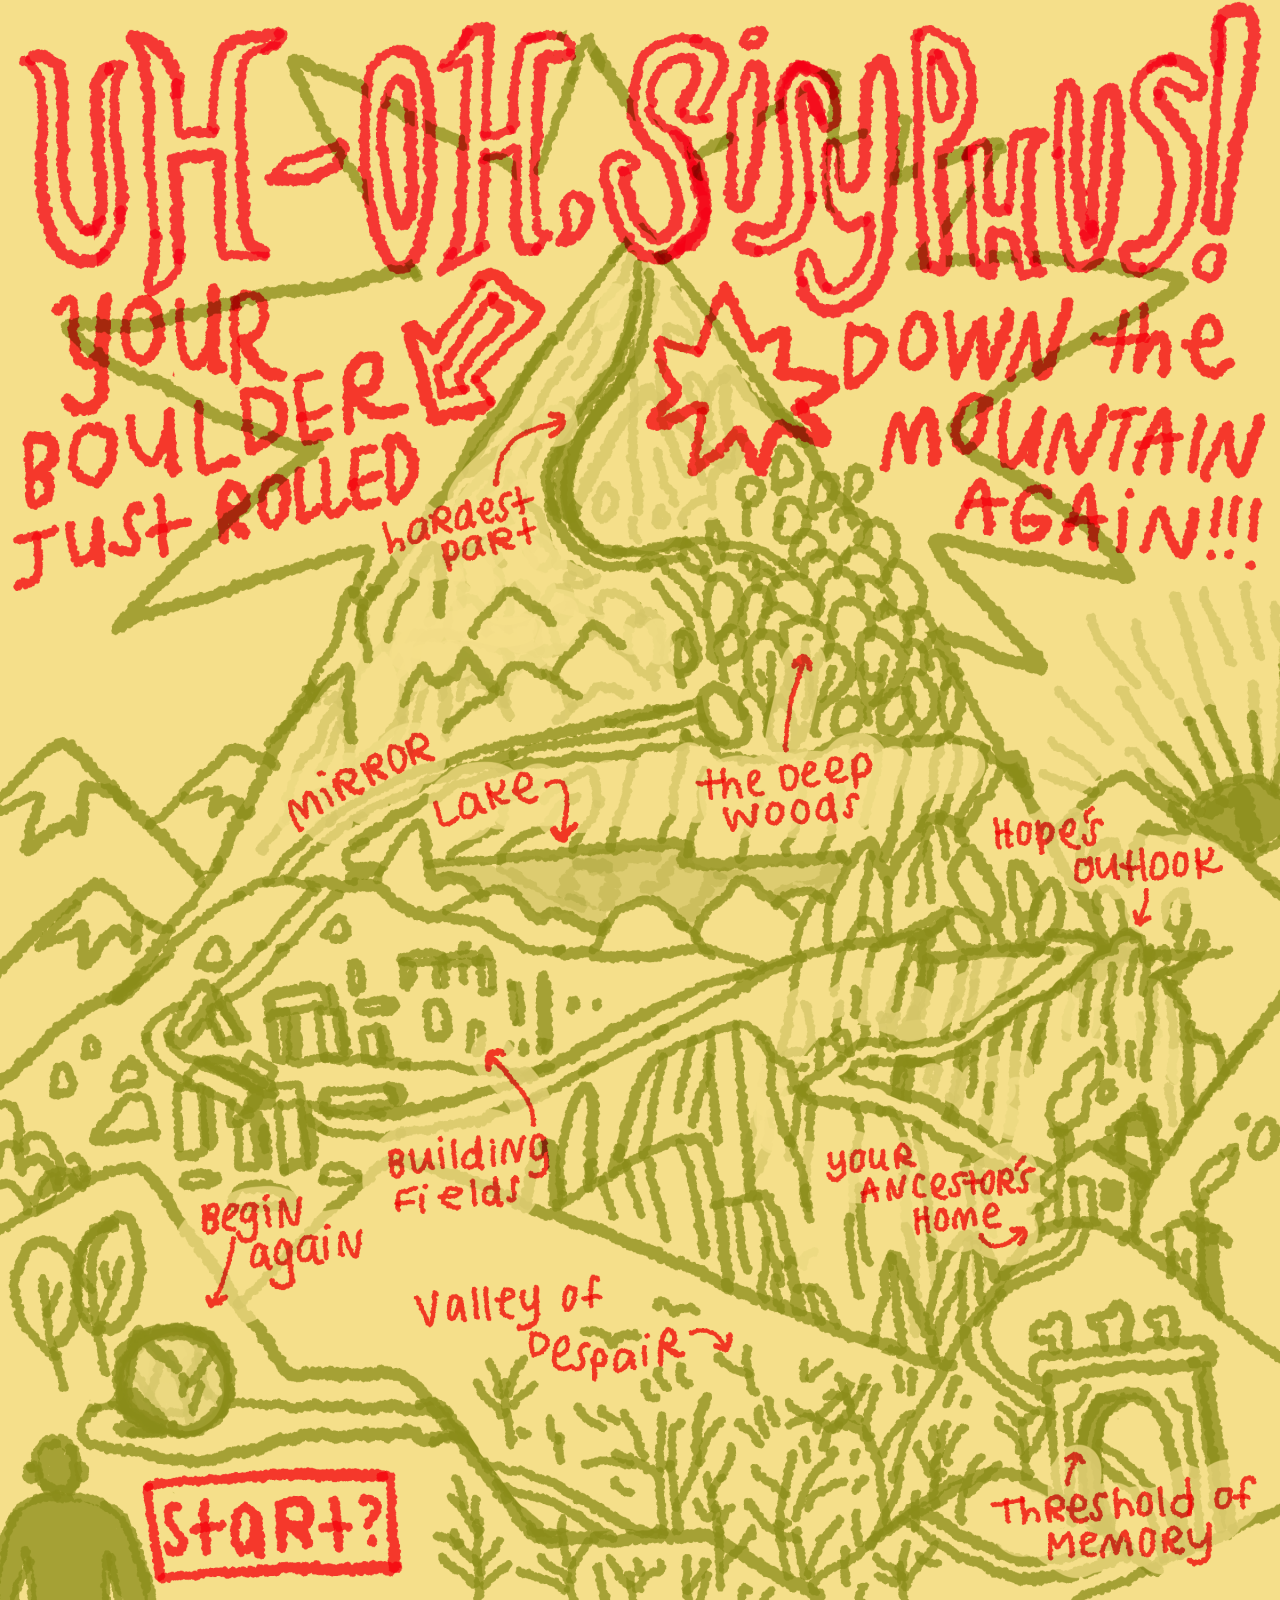 UH-OH, SiSYPHUS!
YOUR
BOULDER
JUSt ROLLED
DOWN the
MOUNTAIN
AGAiN!!!
haRdest
part
MiRROR
LaKe
the Deep
Woods
Hope's
outlook
BuildiNg
Fields
youR
ANcestor's
Home
BegiN
agaiN
Valley of
DespaiR
StaRt?
ThReshold of
MemoRy